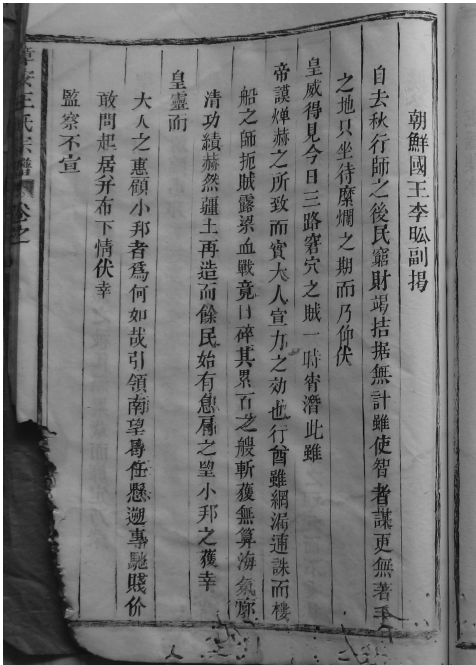 朝鮮國王李昖副揭
自去秋行師之後民窮財竭拮据無計雖使智者謀更無著手
之地只坐待糜爛之期而乃仰伏
皇威得見今日三路窘穴之賊一時宵潛此雖
帝謨燀赫之所致而實大人宣力之効也行酋雖網漏逋誅而樓
船之師扼賊露梁血戰竟日碎其累百之艘斬獲無算海氛廓
清功績赫然疆土再造而餘民始有息肩之望小邦之獲幸
皇靈而
大人之惠顧小邦者為何如哉引領南望曷任懸遡專馳賤价
敢問起居并布下情伏幸
監察不宣
王氏宗譜